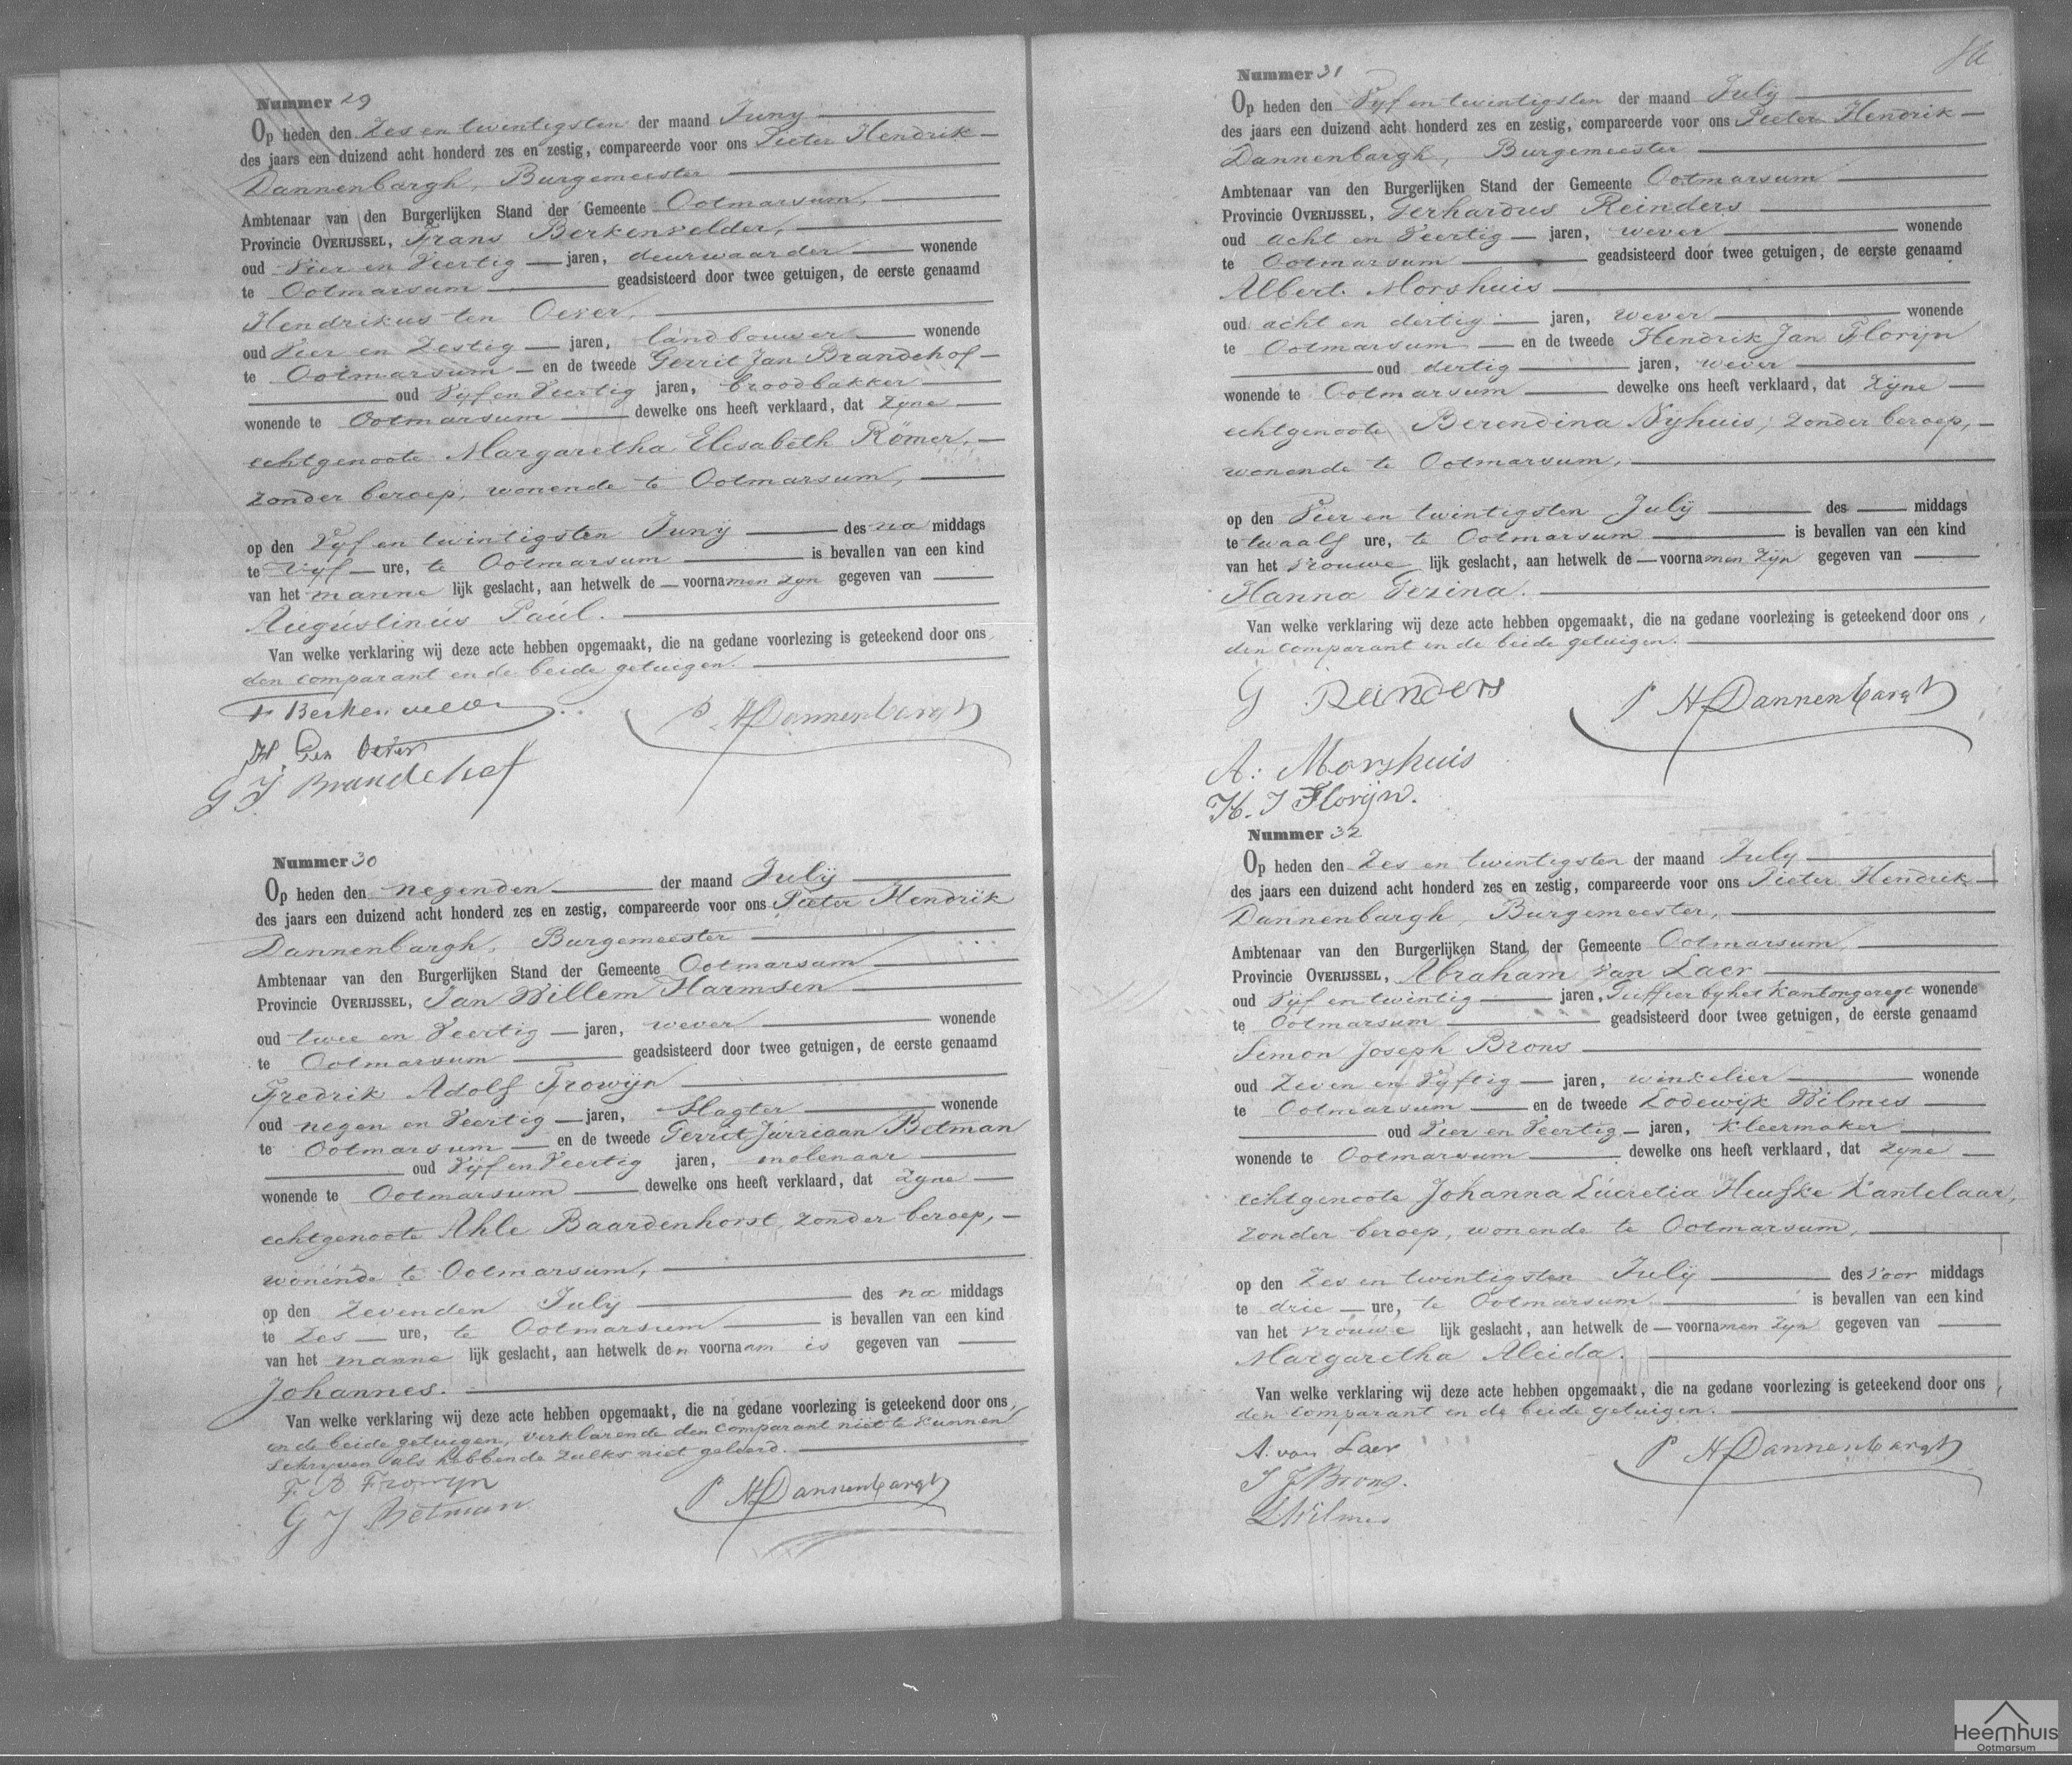 Nummer 29
Op heden den Zes en twintigsten der maand Juny
des jaars een duizend acht honderd zes en zestig, compareerde voor ons Pieter Hendrik
Dannenbargh, Burgemeester
Ambtenaar van den Burgerlijken Stand der Gemeente Ootmarsum,
Provincie OVERIJSSEL, Frans Berkenvelder,
oud Vier en Veertig jaren, deurwaarder wonende
te Ootmarsum geadsisteerd door twee getuigen, de eerste genaamd
Hendrikus ten Oever,
oud Vier en Zestig jaren, landbouwer wonende
te Ootmarsum en de tweede Gerrit Jan Brandehof
oud Vyf en Veertig jaren, broodbakker
wonende te Ootmarsum dewelke ons heeft verklaard, dat zyne
echtgenoote Margaretha Elesabeth Römer,
zonder beroep, wonende te Ootmarsum,
op den Vyf en twintigsten Juny des na middags
te Vyf ure, te Ootmarsum is bevallen van een kind
van het manne lijk geslacht, aan hetwelk de voornamen zyn gegeven van
Augustinus Paul.
Van welke verklaring wij deze acte hebben opgemaakt, die na gedane voorlezing is geteekend door ons,
den comparant en de beide getuigen.
F Berkenvelder
P H Dannenbargh
H. Ten Oever
G J Brandehof
Nummer 30
Op heden den negenden der maand July
des jaars een duizend acht honderd zes en zestig, compareerde voor ons Pieter Hendrik
Dannenbargh, Burgemeester
Ambtenaar van den Burgerlijken Stand der Gemeente Ootmarsum
Provincie OVERIJSSEL, Jan Willem Harmsen
oud twee en Veertig jaren, wever wonende
te Ootmarsum geadsisteerd door twee getuigen, de eerste genaamd
Fredrik Adolf Frowyn
oud negen en Veertig jaren, Slagter wonende
te Ootmarsum en de tweede Gerrit Jurriaan Betman
oud Vyf en Veertig jaren, molenaar
wonende te Ootmarsum dewelke ons heeft verklaard, dat zyne
echtgenoote Ahle Baardenhorst, zonder beroep,
wonende te Ootmarsum,
op den Zevenden July des na middags
te Zes ure, te Ootmarsum is bevallen van een kind
van het manne lijk geslacht, aan hetwelk den voornaam is gegeven van
Johannes.
Van welke verklaring wij deze acte hebben opgemaakt, die na gedane voorlezing is geteekend door ons,
en de beide getuigen, verklarende den comparant niet te kunnen
schryven als hebbende zulks niet geleerd.
F A Frowyn
G J Betman
P H Dannenbargh
Nummer 31
Op heden den Vyf en twintigsten der maand July
des jaars een duizend acht honderd zes en zestig, compareerde voor ons Pieter Hendrik
Dannenbargh, Burgemeester
Ambtenaar van den Burgerlijken Stand der Gemeente Ootmarsum
Provincie OVERIJSSEL, Gerhardus Reinders
oud acht en Veertig jaren, wever wonende
te Ootmarsum geadsisteerd door twee getuigen, de eerste genaamd
Albert Morshuis
oud acht en dertig jaren, wever wonende
te Ootmarsum en de tweede Hendrik Jan Florijn
oud dertig jaren, wever
wonende te Ootmarsum dewelke ons heeft verklaard, dat zyne
echtgenoote Berendina Nyhuis, zonder beroep,
wonende te Ootmarsum,
op den Vier en twintigsten July des middags
te twaalf ure, te Ootmarsum is bevallen van een kind
van het vrouwe lijk geslacht, aan hetwelk de voornamen zyn gegeven van
Hanna Gezina.
Van welke verklaring wij deze acte hebben opgemaakt, die na gedane voorlezing is geteekend door ons,
den comparant en de beide getuigen.
G Reinders
P H Dannenbargh
A: Morshuis
H. J Florijn.
Nummer 32
Op heden den Zes en twintigsten der maand July
des jaars een duizend acht honderd zes en zestig, compareerde voor ons Pieter Hendrik
Dannenbargh, Burgemeester,
Ambtenaar van den Burgerlijken Stand der Gemeente Ootmarsum,
Provincie OVERIJSSEL, Abraham van Laer
oud Vyf en twintig jaren, Griffier by het Kantongeregt wonende
te Ootmarsum geadsisteerd door twee getuigen, de eerste genaamd
Simon Joseph Brons
oud Zeven en Vyftig jaren, winkelier wonende
te Ootmarsum en de tweede Lodewijk Wilmes
oud Vier en Veertig jaren, kleermaker
wonende te Ootmarsum dewelke ons heeft verklaard, dat zyne
echtgenoote Johanna Lucretia Heufke Kantelaar,
zonder beroep, wonende te Ootmarsum,
op den Zes en twintigsten July des voor middags
te drie ure, te Ootmarsum is bevallen van een kind
van het vrouwe lijk geslacht, aan hetwelk de voornamen zyn gegeven van
Margaretha Aleida.
Van welke verklaring wij deze acte hebben opgemaakt, die na gedane voorlezing is geteekend door ons,
den comparant en de beide getuigen.
A. van Laer
P H Dannenbargh
S J Brons.
L Wilmes
Heemhuis
Ootmarsum